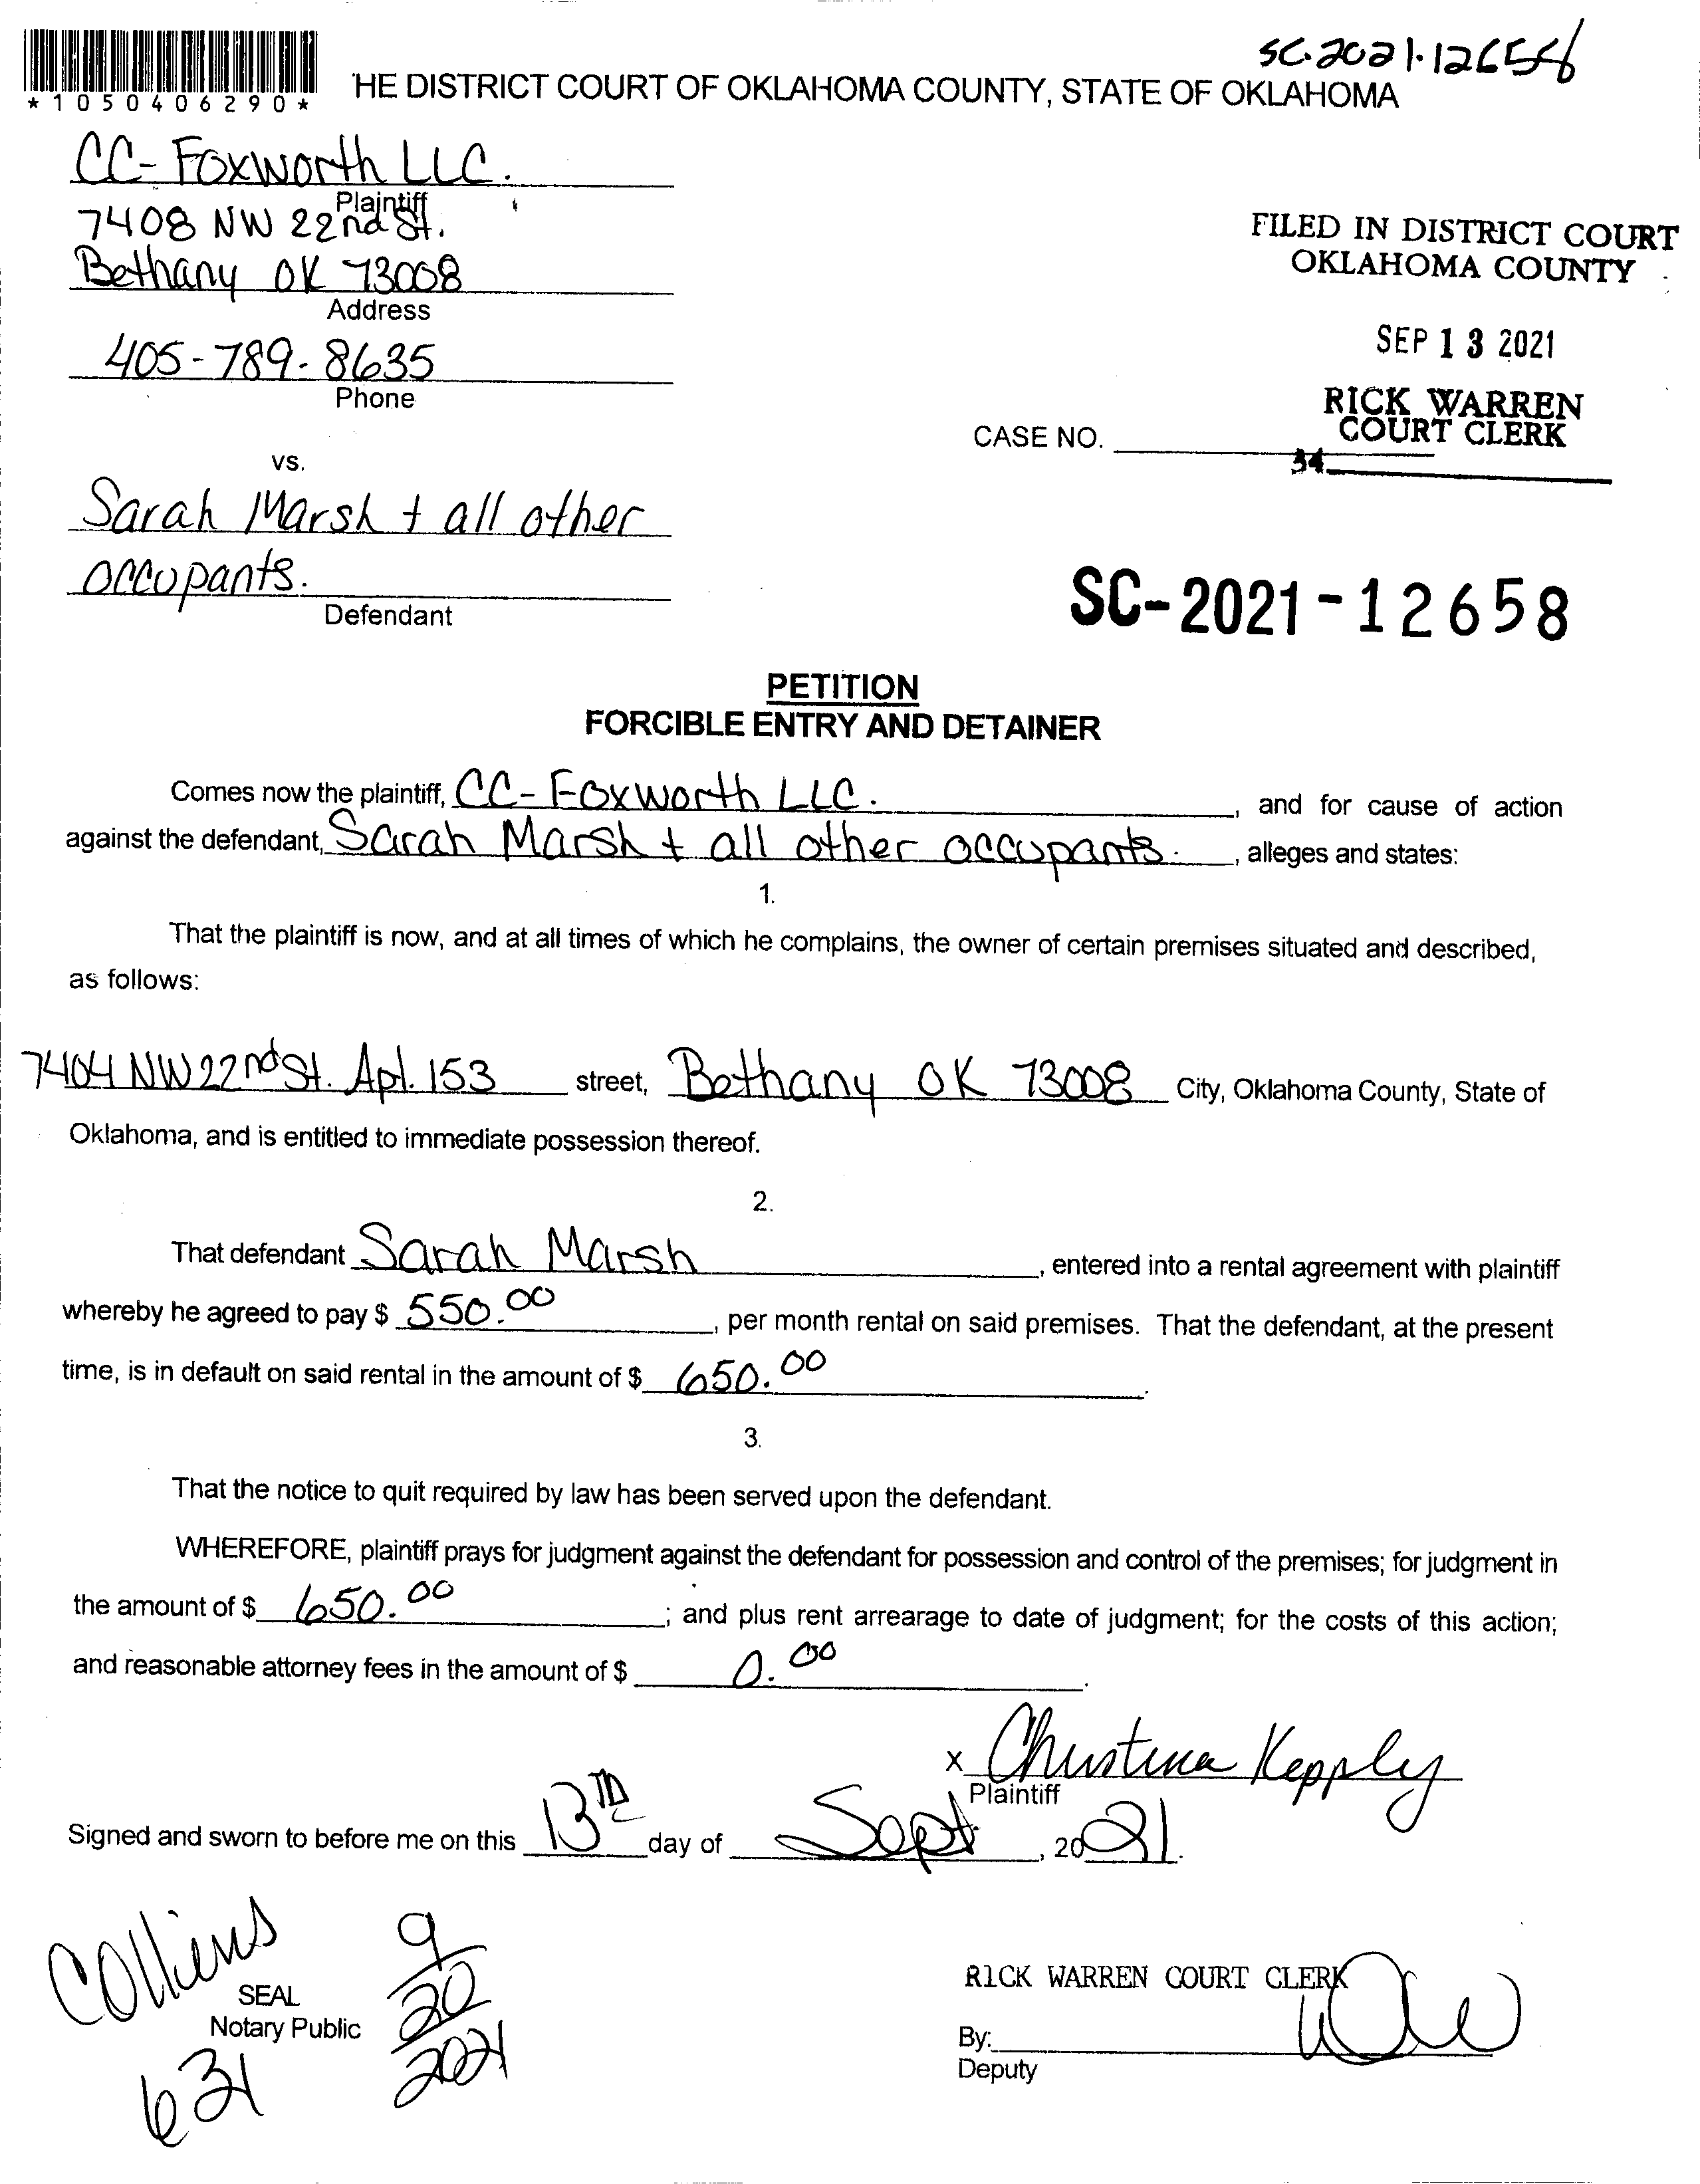 SC-2021-12658
*1050406290*
HE DISTRICT COURT OF OKLAHOMA COUNTY, STATE OF OKLAHOMA
CC-Foxworth LLC.
Plaintiff
7408 NW 22nd St.
Bethany OK 73008
Address
405-789-8635
Phone
FILED IN DISTRICT COURT
OKLAHOMA COUNTY
SEP 13 2021
RICK WARREN
COURT CLERK
CASE NO.
34
vs.
Sarah Marsh + all other
occupants.
Defendant
SC-2021-12658
PETITION
FORCIBLE ENTRY AND DETAINER
Comes now the plaintiff, CC-Foxworth LLC. , and for cause of action
against the defendant, Sarah Marsh + all other occupants. , alleges and states:
1.
That the plaintiff is now, and at all times of which he complains, the owner of certain premises situated and described,
as follows:
7404 NW 22nd St. Apt. 153 street, Bethany OK 73008 City, Oklahoma County, State of
Oklahoma, and is entitled to immediate possession thereof.
2.
That defendant Sarah Marsh , entered into a rental agreement with plaintiff
whereby he agreed to pay $ 550.00 , per month rental on said premises. That the defendant, at the present
time, is in default on said rental in the amount of $ 650.00 .
3.
That the notice to quit required by law has been served upon the defendant.
WHEREFORE, plaintiff prays for judgment against the defendant for possession and control of the premises; for judgment in
the amount of $ 650.00 ; and plus rent arrearage to date of judgment; for the costs of this action;
and reasonable attorney fees in the amount of $ 0.00 .
x Christina Kepply
Plaintiff
Signed and sworn to before me on this 13TH day of Sept , 2021.
Collins
SEAL
Notary Public
631
9/20/2021
RICK WARREN COURT CLERK
By:
Deputy